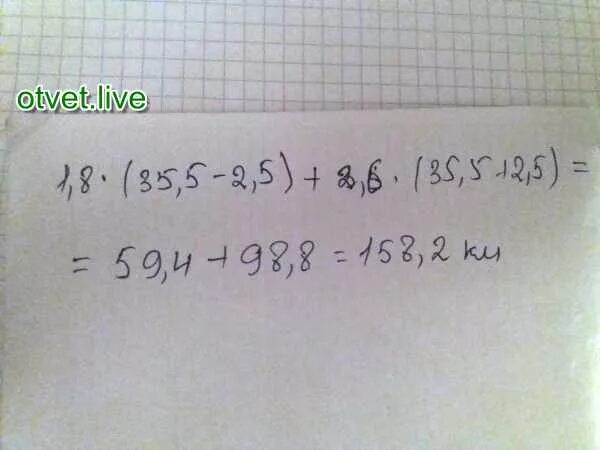 otvet.live
1,8 · (35,5 - 2,5) + 2,6 · (35,5 + 2,5) =
= 59,4 + 98,8 = 158,2 км